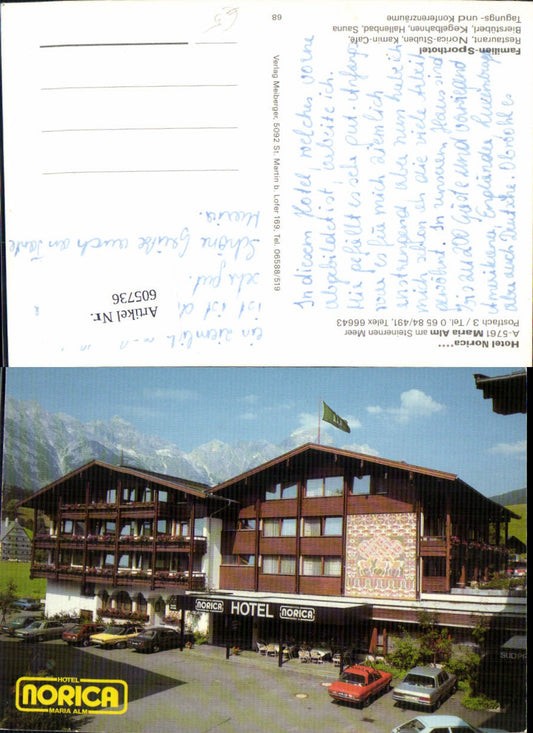 Hotel Norica****
A-5761 Maria Alm am Steinernen Meer
Postfach 3 / Tel. 0 65 84/491, Telex 66643
Familien-Sporthotel
Restaurant, Norica-Stuben, Kamin-Café,
Bierstüberl, Kegelbahnen, Hallenbad, Sauna
Tagungs- und Konferenzräume
In diesem Hotel, welches vorne
abgebildet ist arbeite ich.
Mir gefällt es sehr gut. Anfangs
war es für mich ziemlich
anstrengend aber nun habe ich
mich schon an die viele Arbeit
gewöhnt. In unserem Haus sind
bis zu 200 Gäste und vorwiegend
Amerikaner, Engländer, Luxemburger
aber auch Deutsche. Obwohl es
ein ziemlich
ist ist d
sehr gut.
Schöne Grüße auch an Tante
Maria.
Verlag Meiberger, 5092 St. Martin b. Lofer 169, Tel. 06588/519
68
Artikel Nr.
605736
NORICA HOTEL NORICA
SÜD PR
HOTEL
NORICA
MARIA ALM